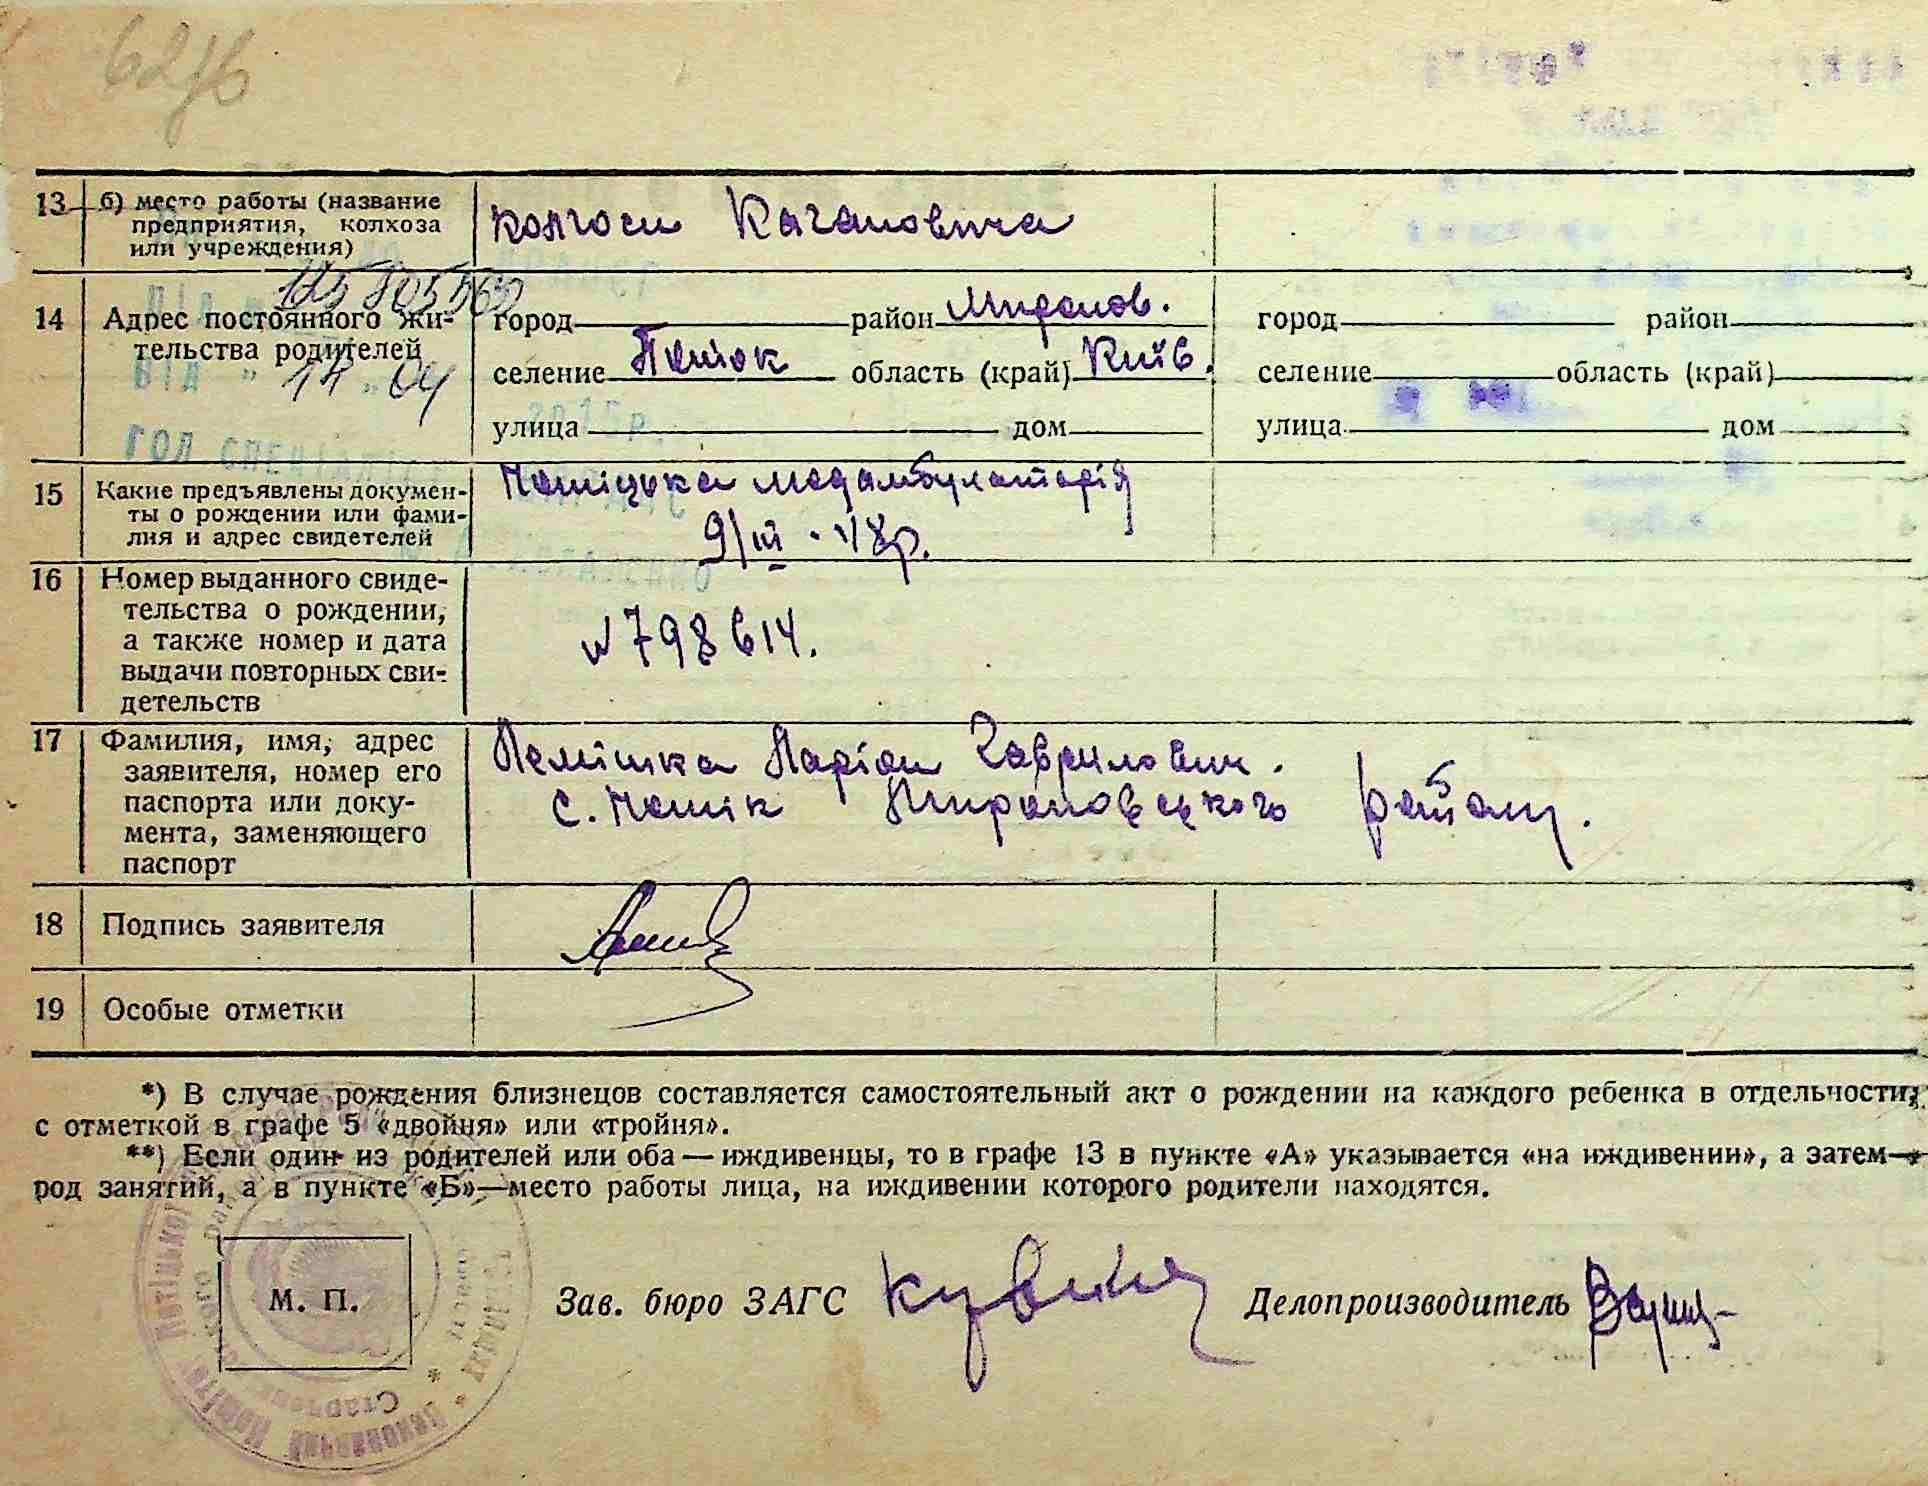 6276
13 б) место работы (название
предприятия, колхоза
или учреждения)
колгосп Кагановича
125805563
14 Адрес постоянного жи-
тельства родителей
14 04
город район Миронов. город район
селение Поток область (край) Київ. селение область (край)
улица дом улица дом
15 Какие предъявлены докумен-
ты о рождении или фами-
лия и адрес свидетелей
медамбулаторія
9/III · 48р.
16 Номер выданного свиде-
тельства о рождении,
а также номер и дата
выдачи повторных сви-
детельств
№798614.
17 Фамилия, имя, адрес
заявителя, номер его
паспорта или доку-
мента, заменяющего
паспорт
Гаврилович.
с. Потік Мироновського району.
18 Подпись заявителя
19 Особые отметки
*) В случае рождения близнецов составляется самостоятельный акт о рождении на каждого ребенка в отдельности,
с отметкой в графе 5 «двойня» или «тройня».
**) Если один из родителей или оба — иждивенцы, то в графе 13 в пункте «А» указывается «на иждивении», а затем—
род занятий, а в пункте «Б»—место работы лица, на иждивении которого родители находятся.
М. П.
Зав. бюро ЗАГС Делопроизводитель